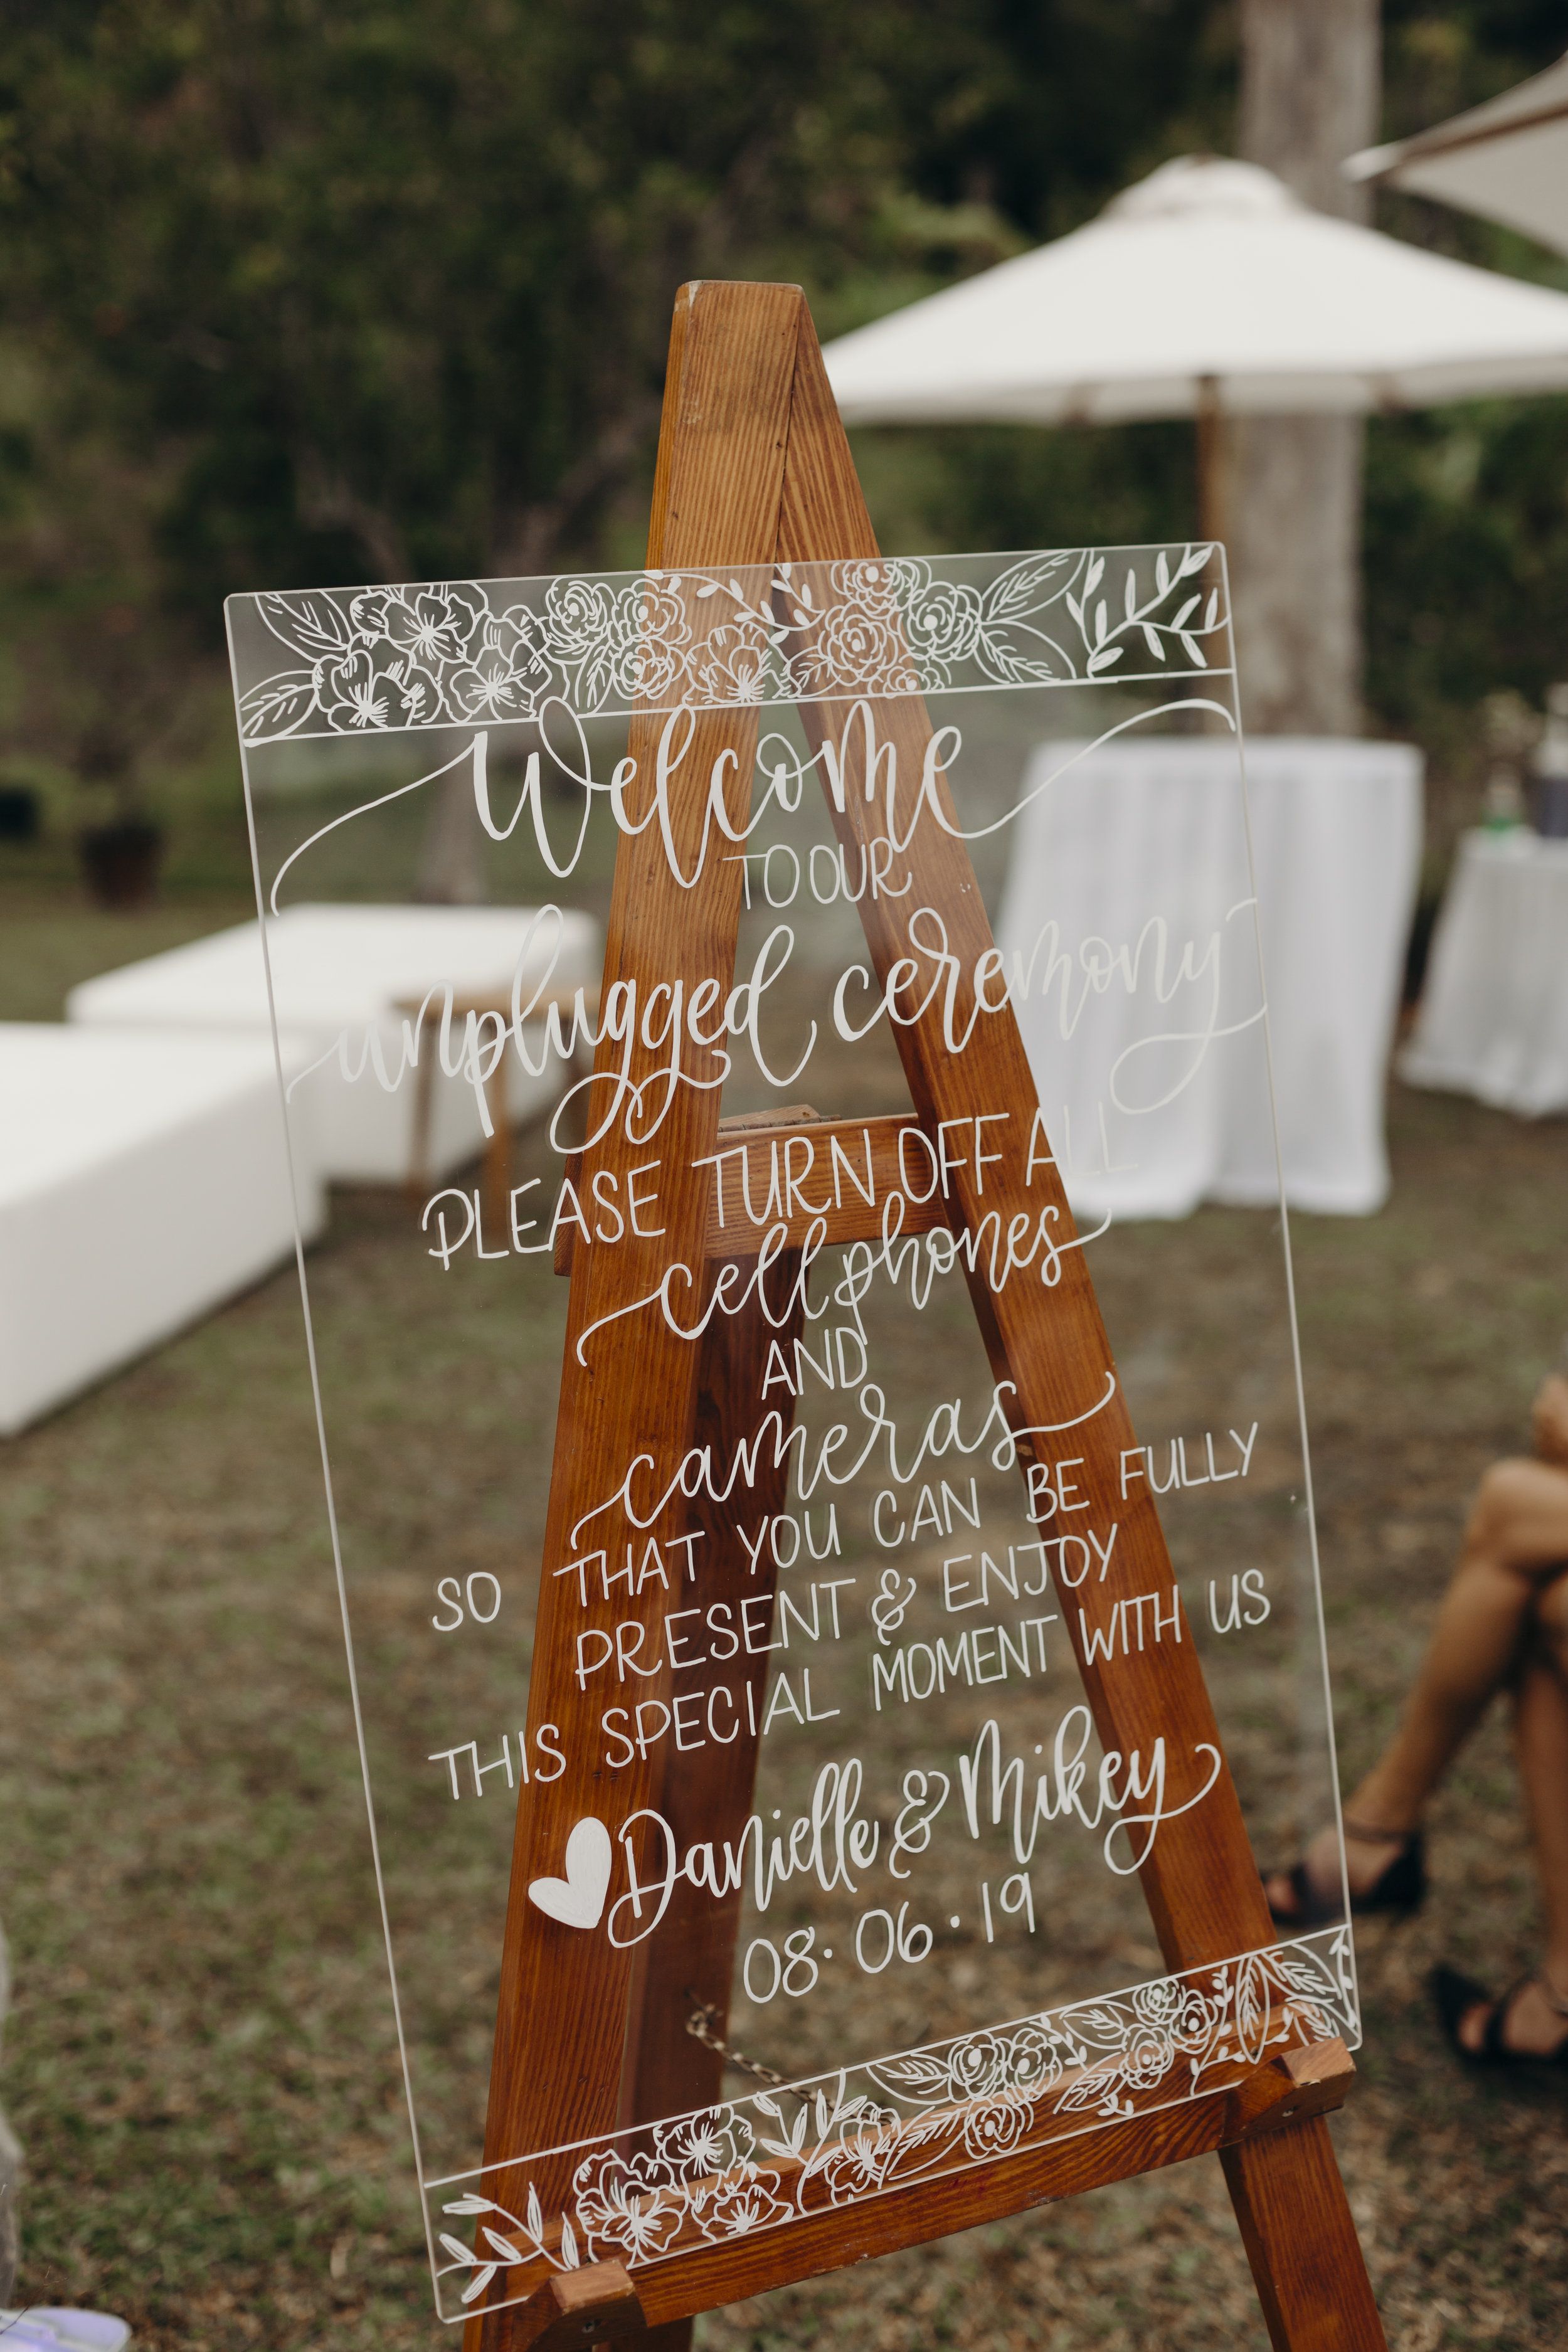 Welcome
TO OUR
unplugged ceremony
PLEASE TURN OFF ALL
cellphones
AND
cameras
SO THAT YOU CAN BE FULLY
PRESENT & ENJOY
THIS SPECIAL MOMENT WITH US
Danielle & Mikey
08.06.19